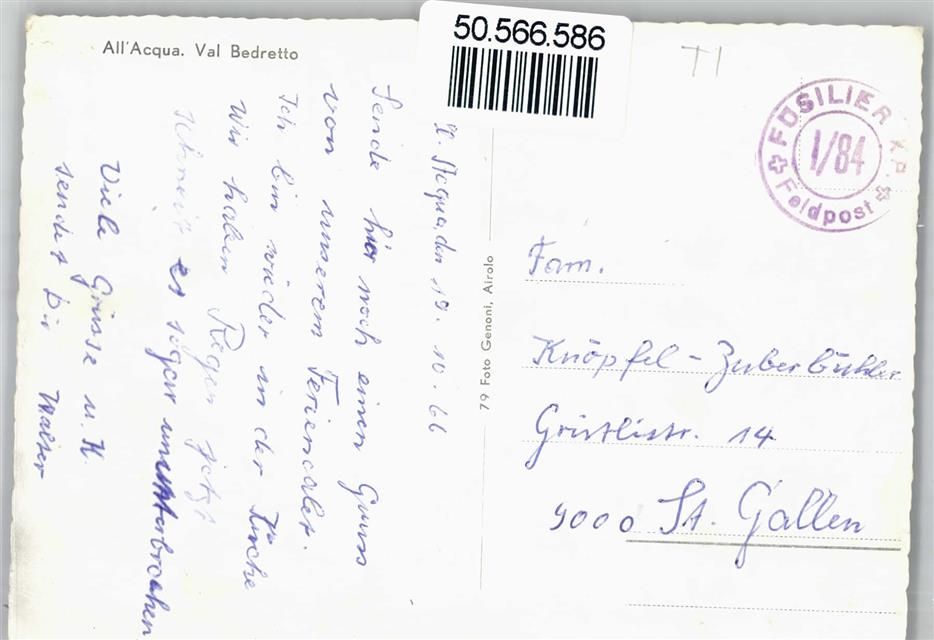 All'Acqua. Val Bedretto
50.566.586
TI
FÜSILIER KP.
I/84
Feldpost
Acqua, den 19. 10. 66
Sende hier noch einen Gruss
von unserem Feriendates.
Ich bin wieder in der Küche
Wir haben Regen jetzt
schneit es sogar ununterbrochen
Viele Grüsse u. K.
sendet Dir Walter
79 Foto Genoni, Airolo
Fam.
Knöpfel - Zuberbühler
Grütlistr. 14
9000 St. Gallen